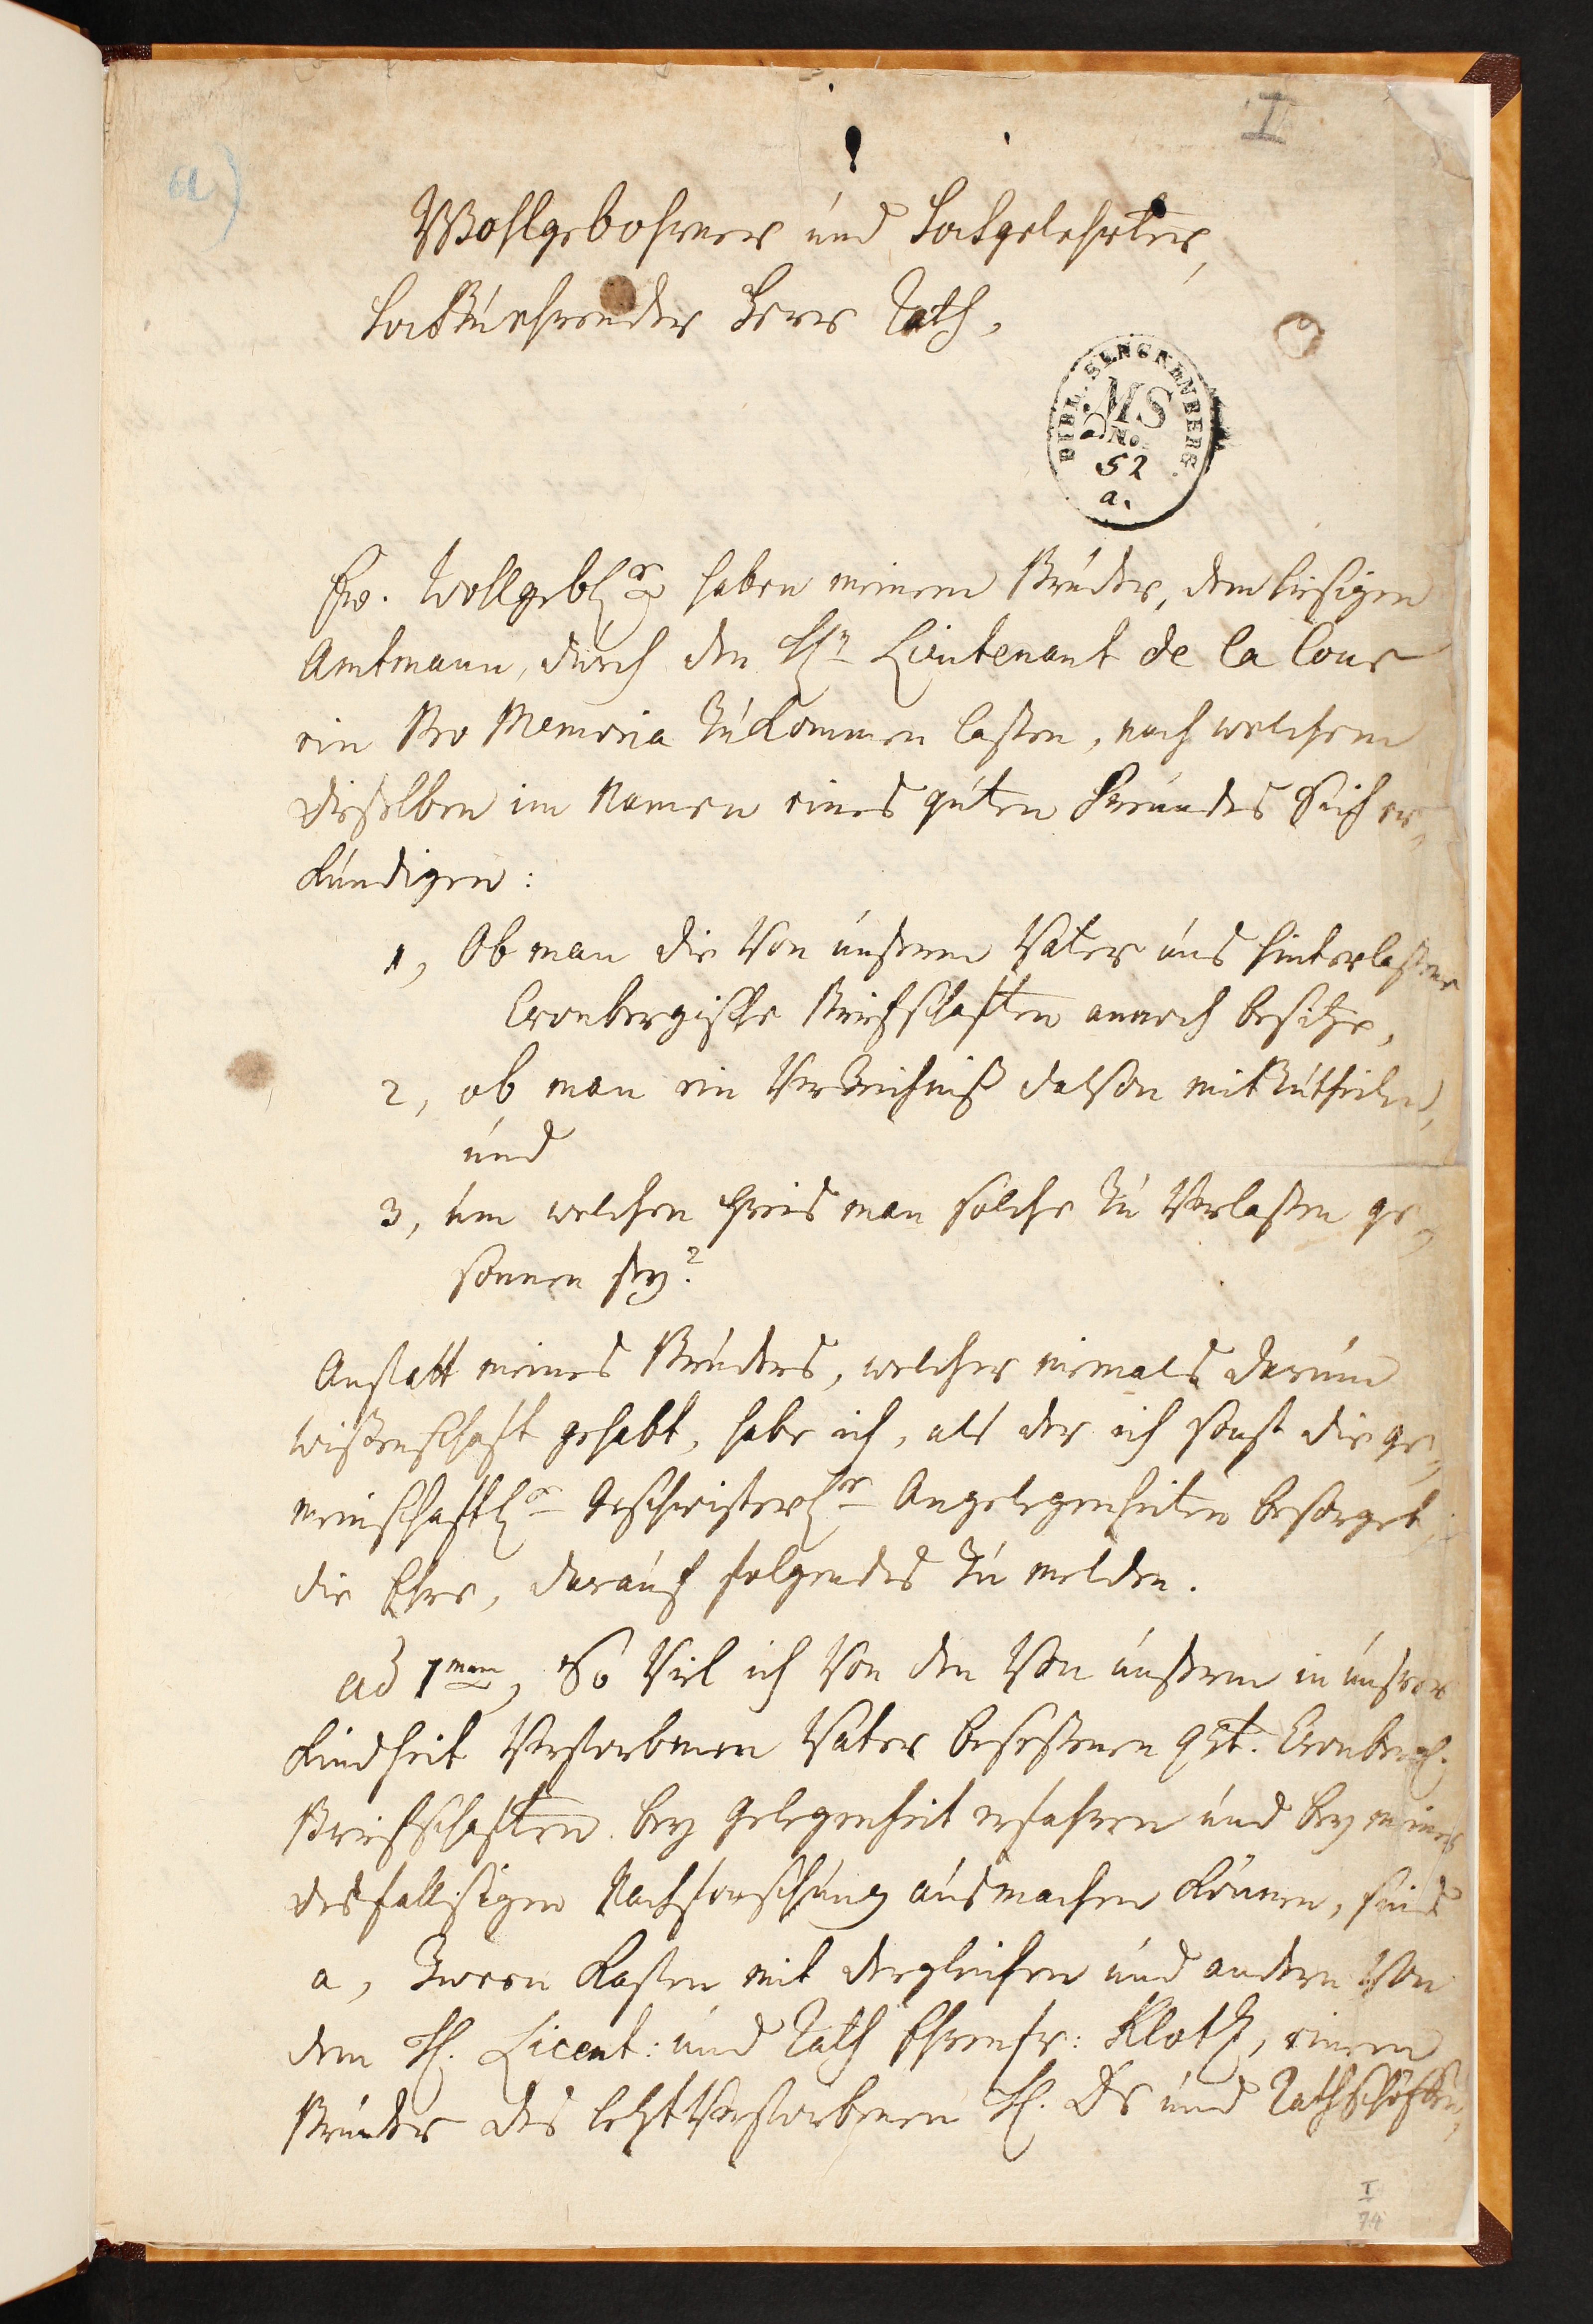 I
a)
Wohlgebohrner und Hochgelehrter,
Hochzuehrender Herr Rath,
BIBL. SENCKENBERG.
MS
No.
52
a.
Ew. Wohlgebh. haben meinem Bruder, dem hiesigen
Amtmann, durch den Hn Lieutenant de la Cour
ein Pro Memoria zukommen laßen, nach welchem
dieselben im Namen eines guten Freundes sich er,
kundigen:
1, Ob man die von unserem Vater uns hinterlaßene
Cronbergische Briefschafften annoch besitze,
2, ob man ein Verzeichniß davon mitzutheilen,
und
3, um welchen Preis man solche zu verlaßen ge,
sonnen sey?
Anstatt meines Bruders, welcher niemals darum
wißenschafft gehabt, habe ich, als der ich sonst die ge,
meinschafftl. Geschwisterl. Angelegenheiten besorget,
die Ehre, darauf folgendes zu melden.
ad 1mum, So viel ich von den von unserem in unserer
Kindheit verstorbenen Vater beseßenen gdt. Cronberg.
Briefschafften bey Gelegenheit erfahren und bey meiner
desfallsigen Nachforschung ausmachen können, sind
a, Zween Kasten mit dergleichen und andern von
dem H. Licent: und Rath Ehrenfr: Klotz, einem
Bruder des letztverstorbenen H. Dr und Rathschöffen,
I
74